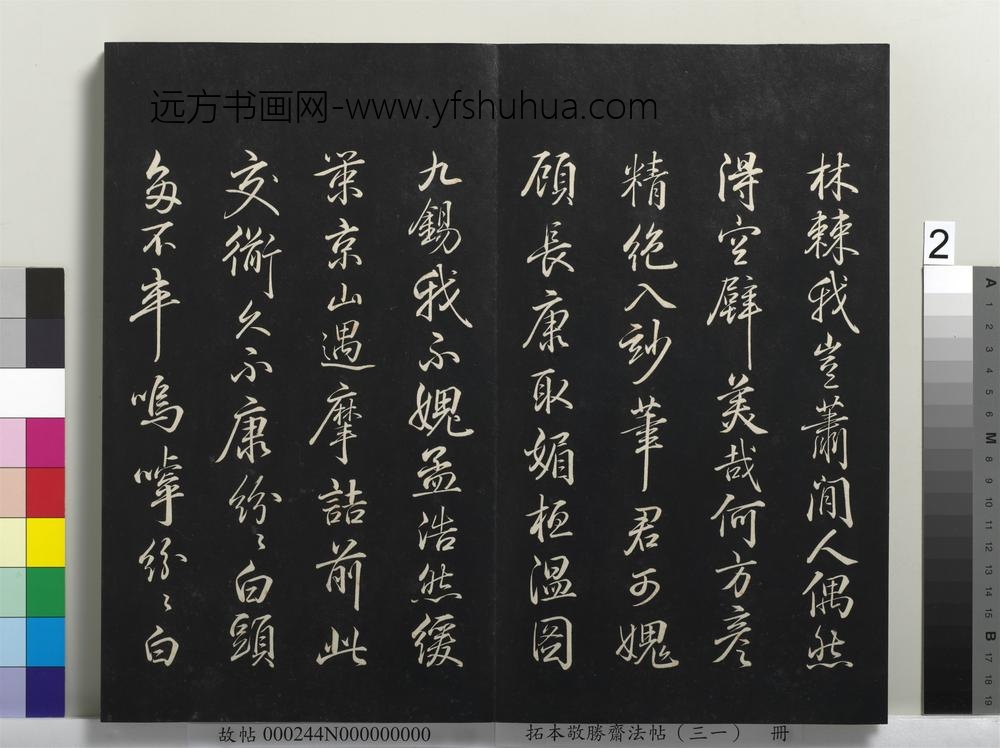 远方书画网-www.yfshuhua.com
林棘我豈蕭閒人偶然
得空美哉何方彥
精絶入妙筆君可媿
顧長康取媚桓溫圖
九錫我不媿孟浩然緩
京山遇摩詰前此
交久不康紛〻白頭
多不率嗚嘑紛〻白
2
A 1 2 3 4 5 6 M 8 9 10 11 12 13 14 15 B 17 18 19
故帖 000244N000000000
拓本敬勝齋法帖（三一） 冊